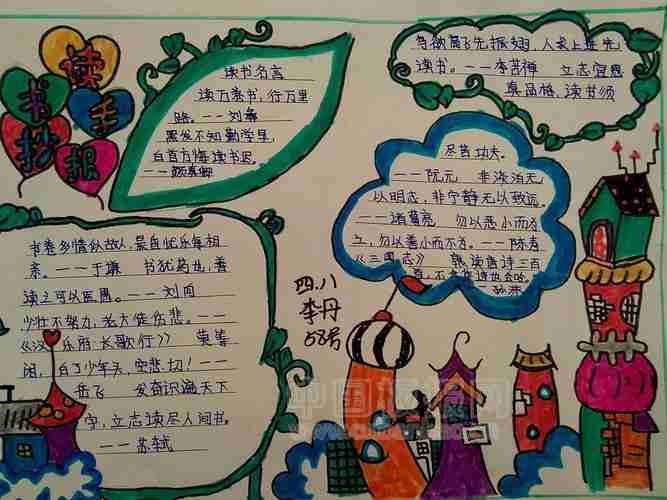 读书手抄报
读书名言
读万卷书，行万里
路。——刘彝
黑发不知勤学早，
白首方悔读书迟。
——颜真卿
鸟欲高飞先振翅，人求上进先
读书。——李苦禅 立志宜思
真品格，读书须
尽苦功夫。
——阮元 非淡泊无
以明志，非宁静无以致远。
——诸葛亮 勿以恶小而为
之，勿以善小而不为。——陈寿
《三国志》 熟读唐诗三百
首，不会作诗也会吟
书卷多情似故人，晨昏忧乐每相
亲。——于谦 书犹药也，善
读之可以医愚。——刘向
少壮不努力，老大徒伤悲。——
《汉乐府·长歌行》 莫等
闲，白了少年头，空悲切！——
岳飞 发奋识遍天下
字，立志读尽人间书。
——苏轼
四.八
李丹
58号